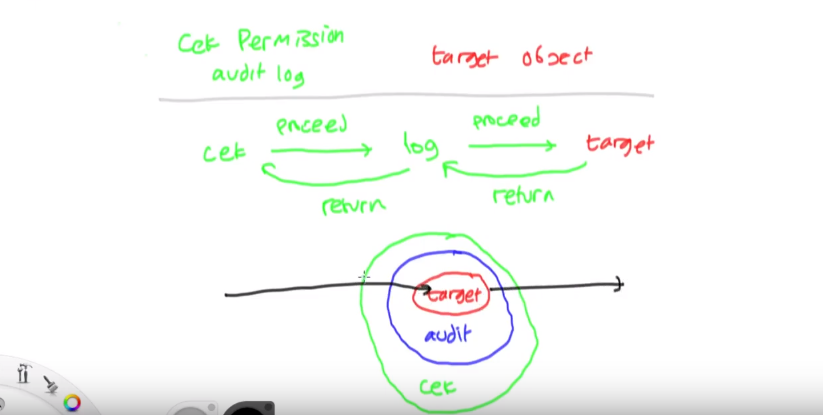 Cek Permission
audit log
target object
proceed
proceed
cek
log
target
return
return
target
audit
cek